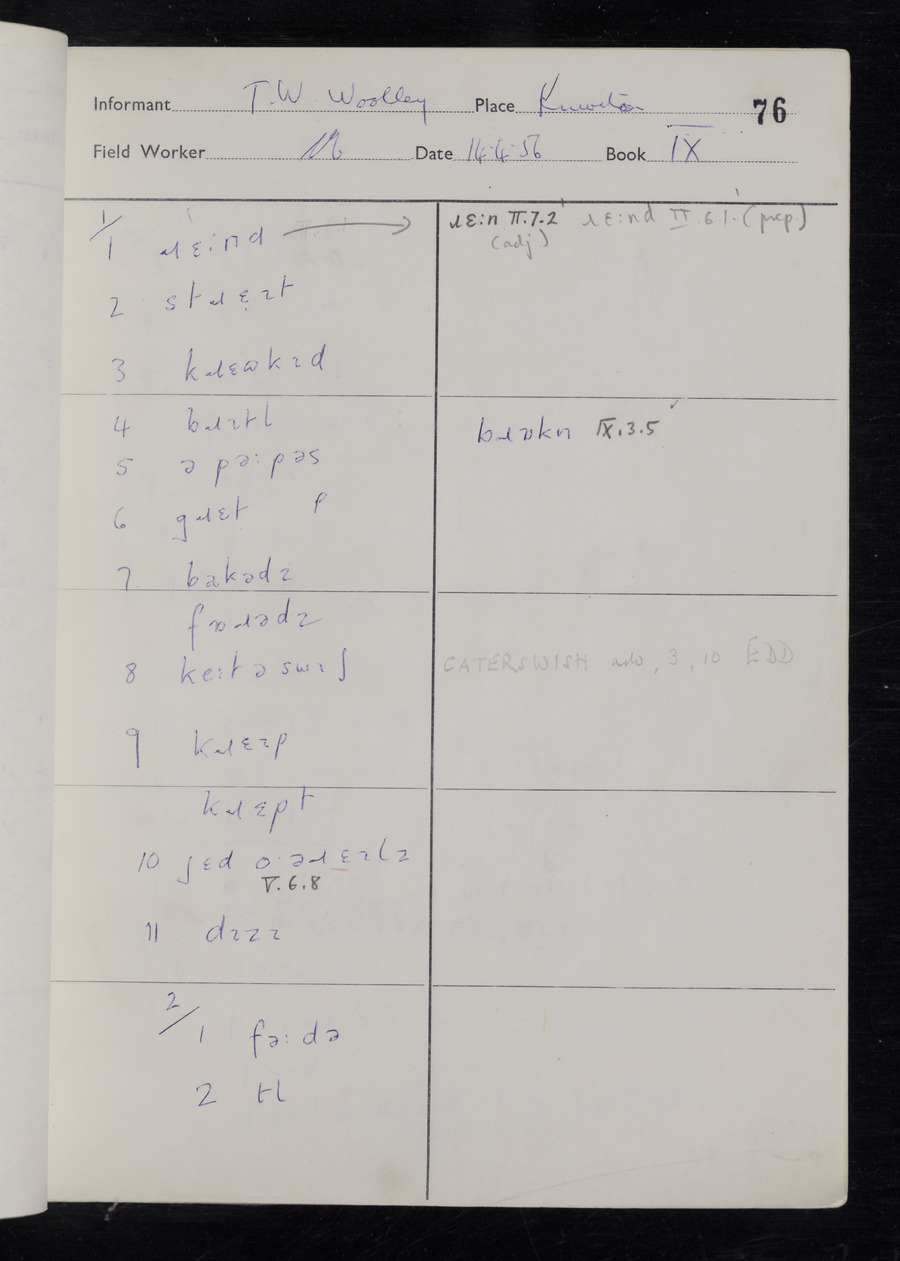 Informant T.W. Woolley Place Kniveton 76
Field Worker Date 14.4.56 Book IX
1/1 ɹɛ:ɪnd → ɹɛ:n II.7.2 (adj) ɹɛ:nd II.6.1. (prep.)
2 stɹɛɪt
3 kɹɛɷkɪd
4 bɹɪtl bɹɒkn IX.3.5
5 ə pə:pəs
6 gɹɛt P
7 bækədz
fɒɹədz
8 ke:təswɪʃ CATERSWISH adv, 3, 10 EDD
9 kɹɛɪp
kɹɛpt
10 ʃɛd o:əɹɛɪlz
V.6.8
11 dɪzɪ
2/1 fə:də
2 tl